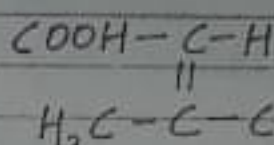 COOH-C-H
||
H₂C-C-C